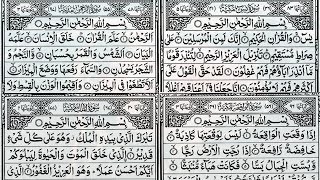 بِسْمِ اللهِ الرَّحْمٰنِ الرَّحِيْمِ
يٰسٓ وَالْقُرْاٰنِ الْحَكِيْمِ اِنَّكَ لَمِنَ الْمُرْسَلِيْنَ عَلٰى
صِرَاطٍ مُّسْتَقِيْمٍ تَنْزِيْلَ الْعَزِيْزِ الرَّحِيْمِ لِتُنْذِرَ قَوْمًا
مَّآ اُنْذِرَ اٰبَآؤُهُمْ فَهُمْ غٰفِلُوْنَ لَقَدْ حَقَّ الْقَوْلُ
بِسْمِ اللهِ الرَّحْمٰنِ الرَّحِيْمِ
اَلرَّحْمٰنُ عَلَّمَ الْقُرْاٰنَ خَلَقَ الْاِنْسَانَ عَلَّمَهُ
الْبَيَانَ اَلشَّمْسُ وَالْقَمَرُ بِحُسْبَانٍ وَّالنَّجْمُ وَ
الشَّجَرُ يَسْجُدٰنِ وَالسَّمَآءَ رَفَعَهَا وَوَضَعَ الْمِيْزَانَ
اَلَّا تَطْغَوْا فِى الْمِيْزَانِ وَاَقِيْمُوا الْوَزْنَ بِالْقِسْطِ وَلَا
بِسْمِ اللهِ الرَّحْمٰنِ الرَّحِيْمِ
اِذَا وَقَعَتِ الْوَاقِعَةُ لَيْسَ لِوَقْعَتِهَا كَاذِبَةٌ
خَافِضَةٌ رَّافِعَةٌ اِذَا رُجَّتِ الْاَرْضُ رَجًّا
وَّبُسَّتِ الْجِبَالُ بَسًّا فَكَانَتْ هَبَآءً مُّنْۢبَثًّا
بِسْمِ اللهِ الرَّحْمٰنِ الرَّحِيْمِ
تَبٰرَكَ الَّذِيْ بِيَدِهِ الْمُلْكُ وَهُوَ عَلٰى كُلِّ شَيْءٍ
قَدِيْرٌ الَّذِيْ خَلَقَ الْمَوْتَ وَالْحَيٰوةَ لِيَبْلُوَكُمْ
اَيُّكُمْ اَحْسَنُ عَمَلًا وَهُوَ الْعَزِيْزُ الْغَفُوْرُ الَّذِيْ